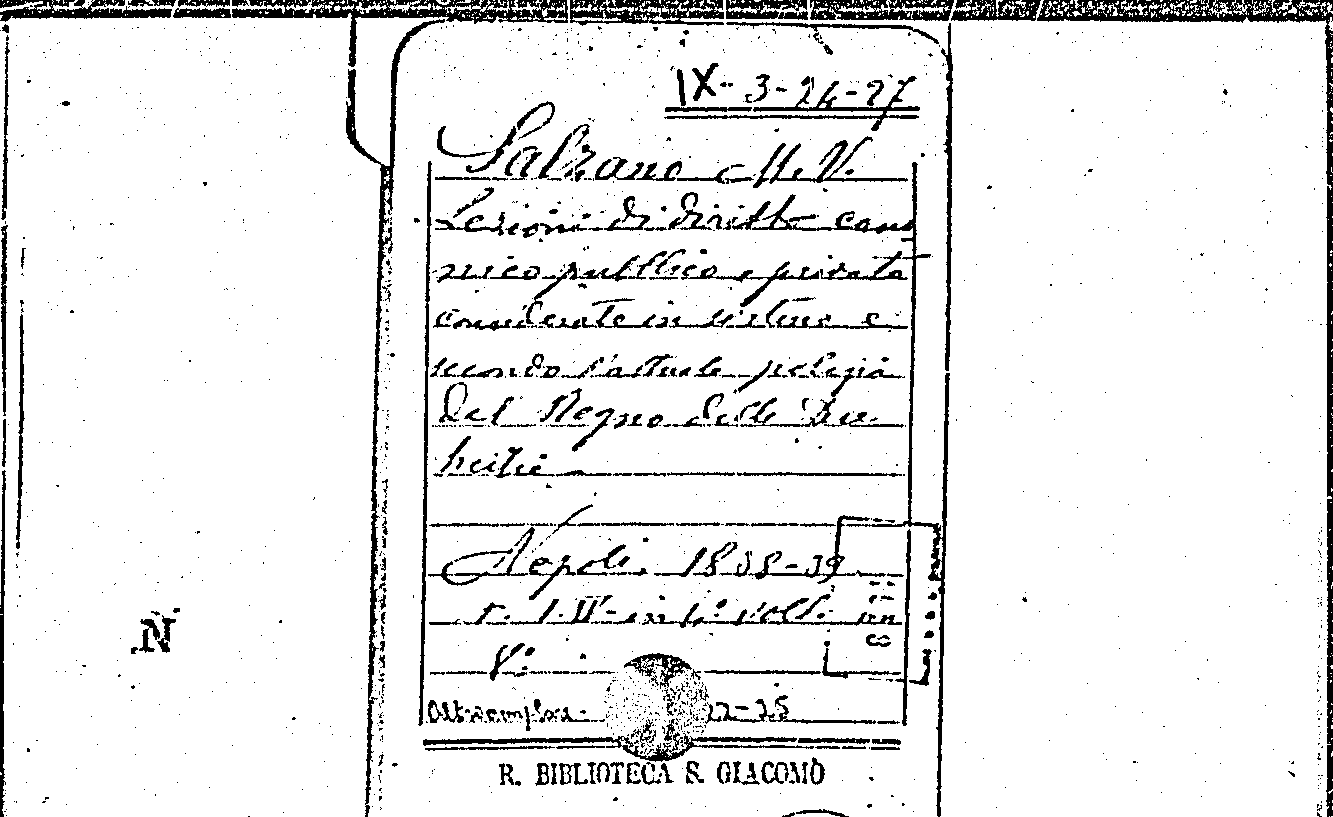 IX-3-24-27
Salzano M. V.
Lezioni di diritto cano
nico pubblico e privato
considerato in sistema e
secondo l'attuale polizia
del Regno delle Due
Sicilie
Napoli. 1838-39
N
T. I-IV in 4° voll. in
8°
Altro esemplare - 22-25
R. BIBLIOTECA S. GIACOMO